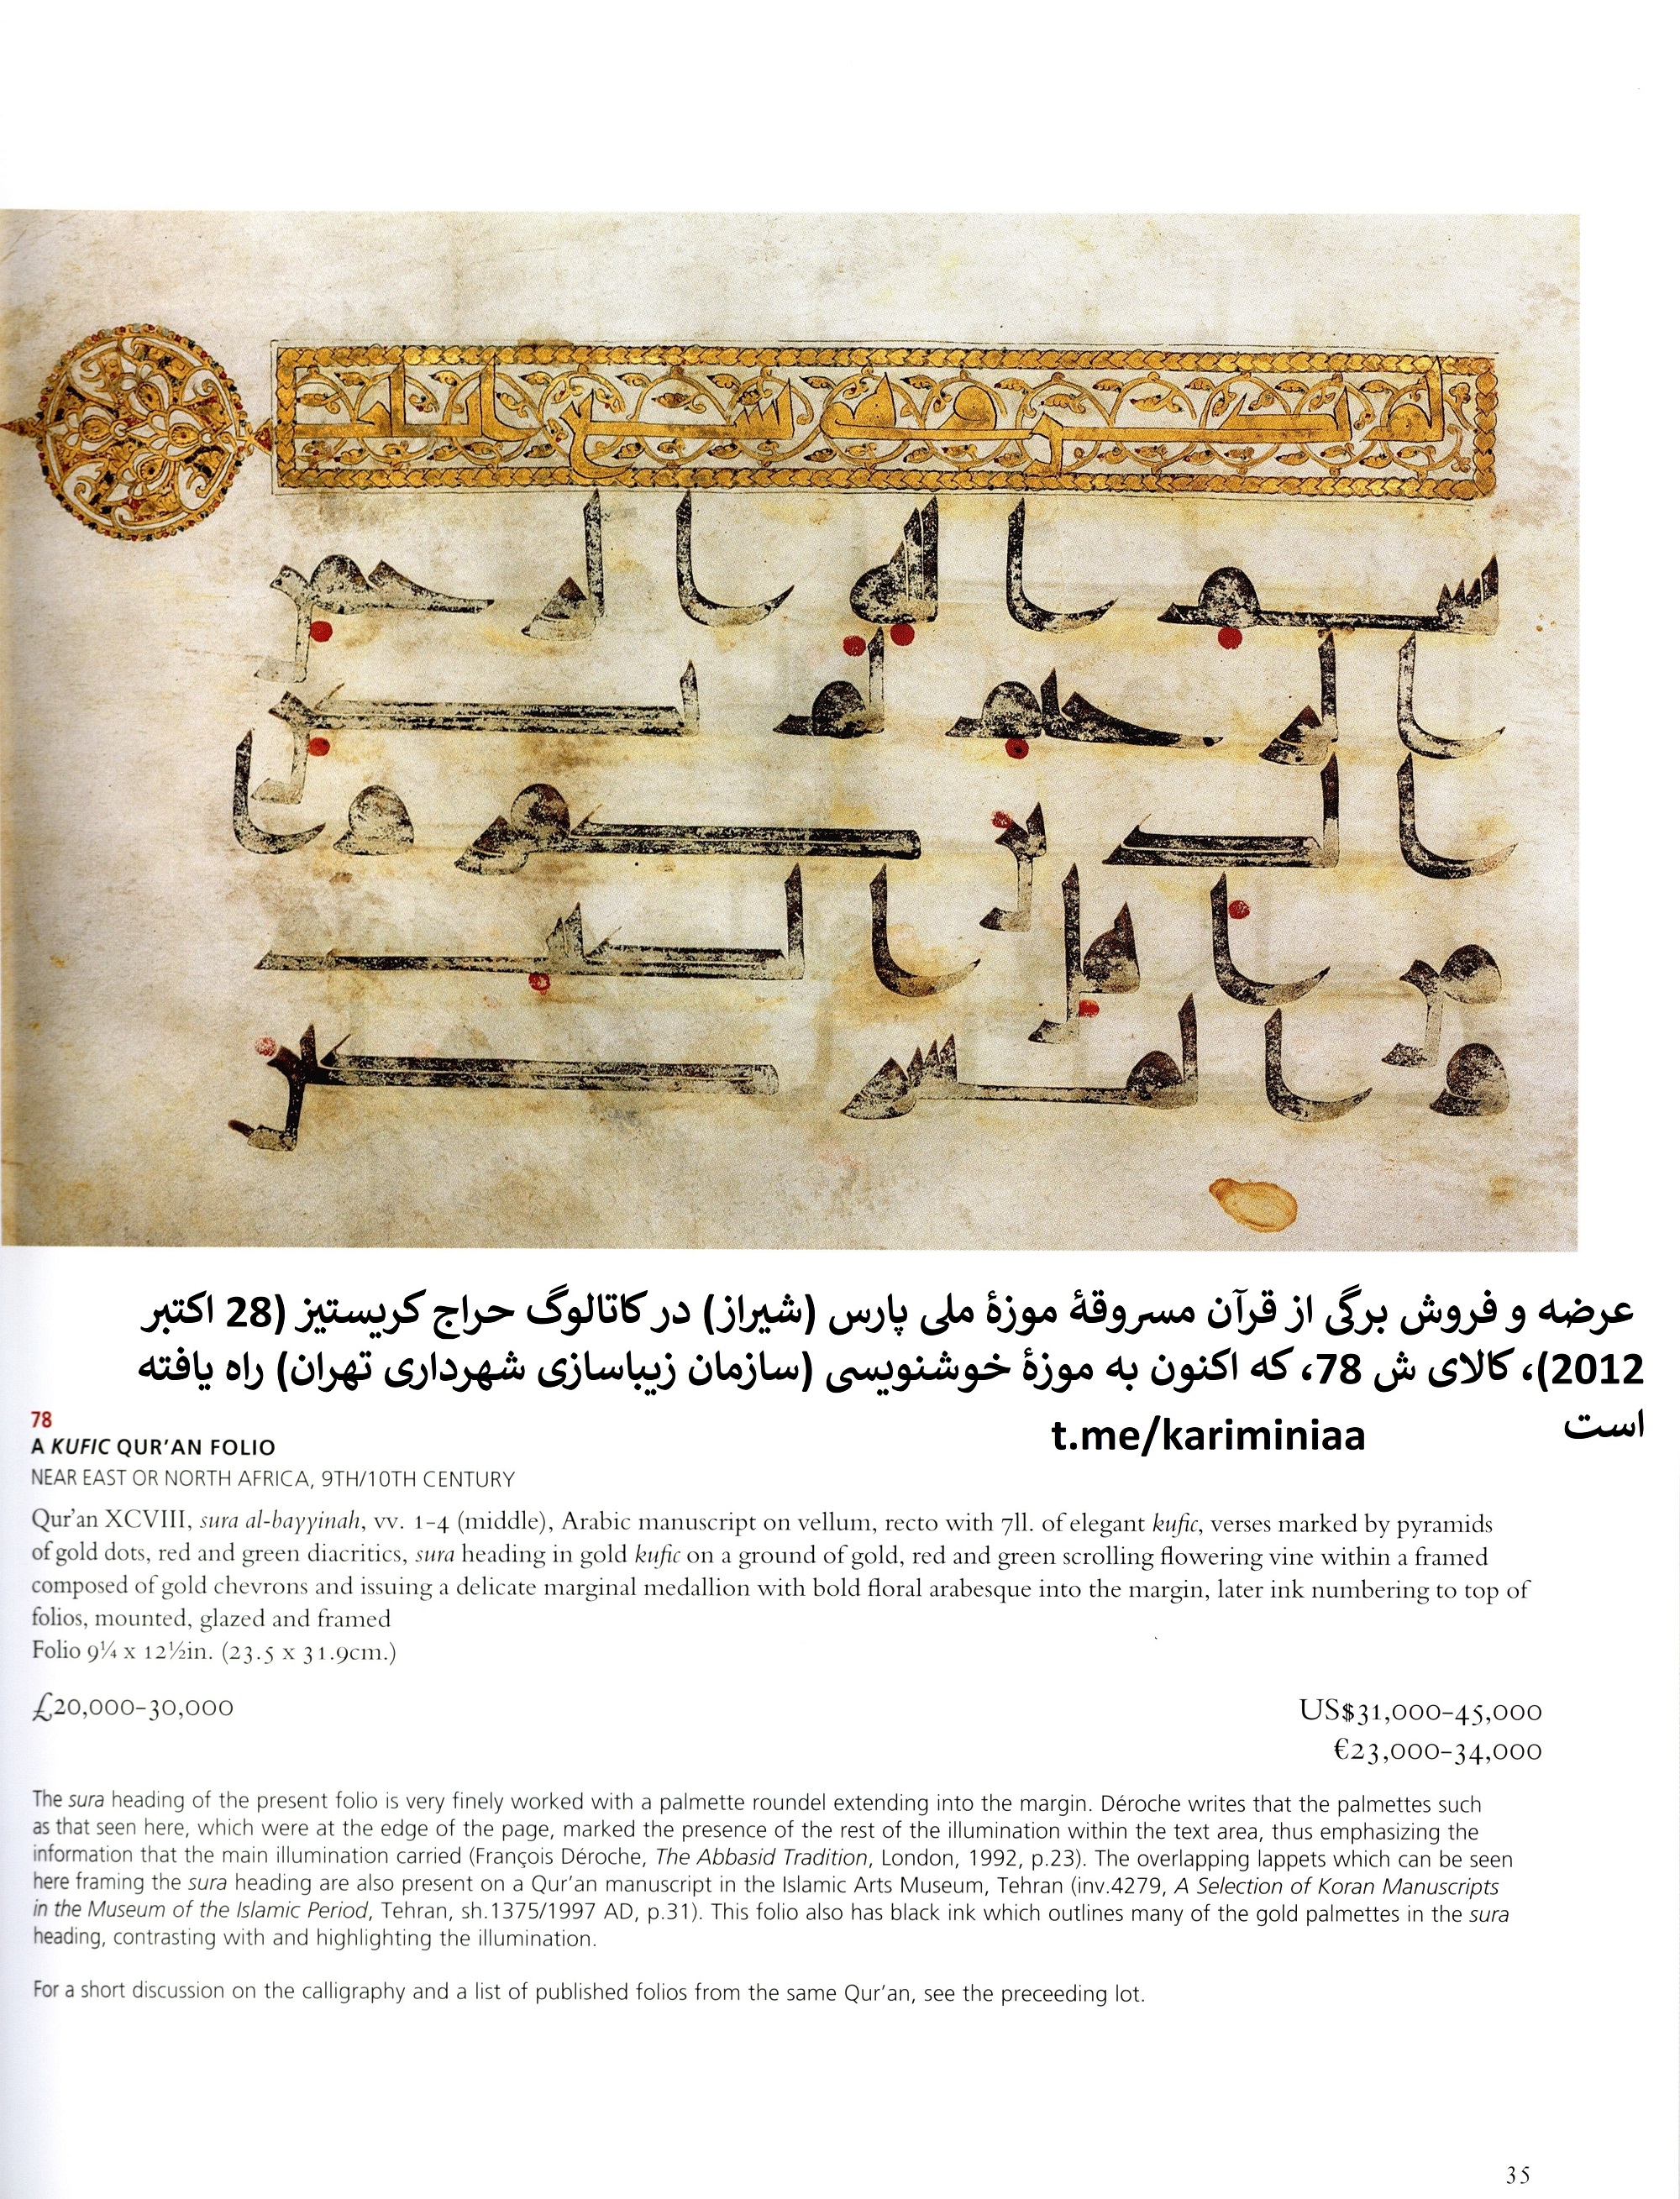 لم يكن وهي تسع ايات
بسم الله الرحمن
الرحيم لم يكن
الذين كفروا
من اهل الكتب
والمشركين
عرضه و فروش برگی از قرآن مسروقهٔ موزهٔ ملی پارس (شیراز) در کاتالوگ حراج کریستیز (28 اکتبر
2012)، کالای ش 78، که اکنون به موزهٔ خوشنویسی (سازمان زیباسازی شهرداری تهران) راه یافته
است
t.me/kariminiaa
78
A KUFIC QUR'AN FOLIO
NEAR EAST OR NORTH AFRICA, 9TH/10TH CENTURY
Qur'an XCVIII, sura al-bayyinah, vv. 1-4 (middle), Arabic manuscript on vellum, recto with 7ll. of elegant kufic, verses marked by pyramids
of gold dots, red and green diacritics, sura heading in gold kufic on a ground of gold, red and green scrolling flowering vine within a framed
composed of gold chevrons and issuing a delicate marginal medallion with bold floral arabesque into the margin, later ink numbering to top of
folios, mounted, glazed and framed
Folio 9¼ x 12½in. (23.5 x 31.9cm.)
£20,000-30,000
US$31,000-45,000
€23,000-34,000
The sura heading of the present folio is very finely worked with a palmette roundel extending into the margin. Déroche writes that the palmettes such
as that seen here, which were at the edge of the page, marked the presence of the rest of the illumination within the text area, thus emphasizing the
information that the main illumination carried (François Déroche, The Abbasid Tradition, London, 1992, p.23). The overlapping lappets which can be seen
here framing the sura heading are also present on a Qur'an manuscript in the Islamic Arts Museum, Tehran (inv.4279, A Selection of Koran Manuscripts
in the Museum of the Islamic Period, Tehran, sh.1375/1997 AD, p.31). This folio also has black ink which outlines many of the gold palmettes in the sura
heading, contrasting with and highlighting the illumination.
For a short discussion on the calligraphy and a list of published folios from the same Qur'an, see the preceeding lot.
35